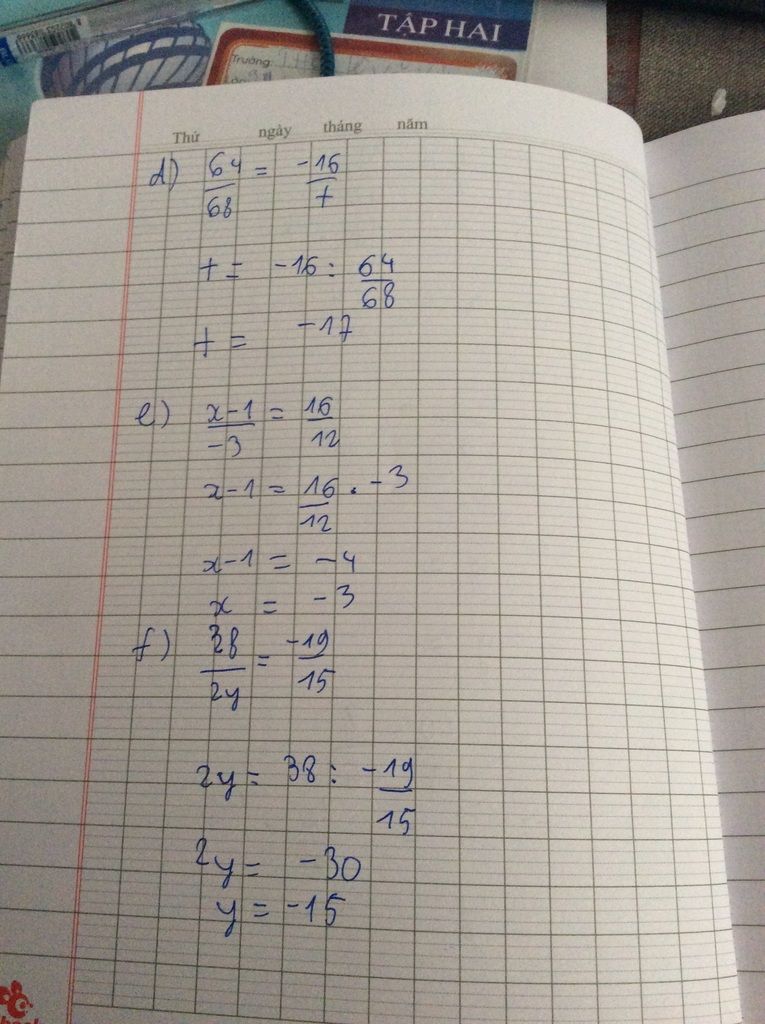 TẬP HAI
Trường: THCS
Thứ ngày tháng năm
d) 64/68 = -16/t
t = -16 : 64/68
t = -17
e) x-1/-3 = 16/12
x-1 = 16/12 . -3
x-1 = -4
x = -3
f) 38/2y = -19/15
2y = 38 : -19/15
2y = -30
y = -15